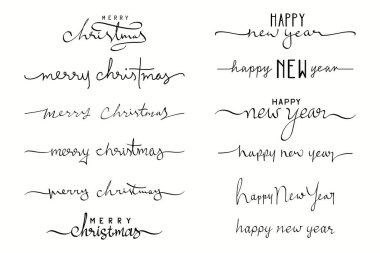 MERRY
christmas
merry christmas
merry christmas
merry christmas
merry christmas
MERRY
christmas
HAPPY
new year
happy NEW year
HAPPY
new year
happy new year
happy New Year
happy new year